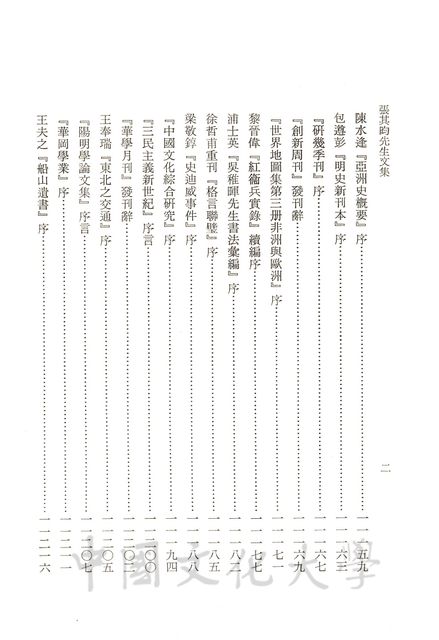 張其昀先生文集
二
陳水逢『亞洲史概要』序……一一一五九
包遵彭『明史新刊本』序……一一一六三
『研幾季刊』序……一一一六七
『創新周刊』發刊辭……一一一六九
『世界地圖集第三册非洲與歐洲』序……一一一七一
黎晉偉『紅衞兵實錄』續編序……一一一七七
浦士英『吳稚暉先生書法彙編』序……一一一八二
徐哲甫重刊『格言聯璧』序……一一一八五
梁敬錞『史迪威事件』序……一一一八八
『中國文化綜合研究』序……一一一九四
『三民主義新世紀』序言……一一二〇〇
『華學月刊』發刊辭……一一二〇二
王奉瑞『東北之交通』序……一一二〇五
『陽明學論文集』序言……一一二〇七
『華岡學業』序……一一二一一
王夫之『船山遺書』序……一一二一六
中國文化大學